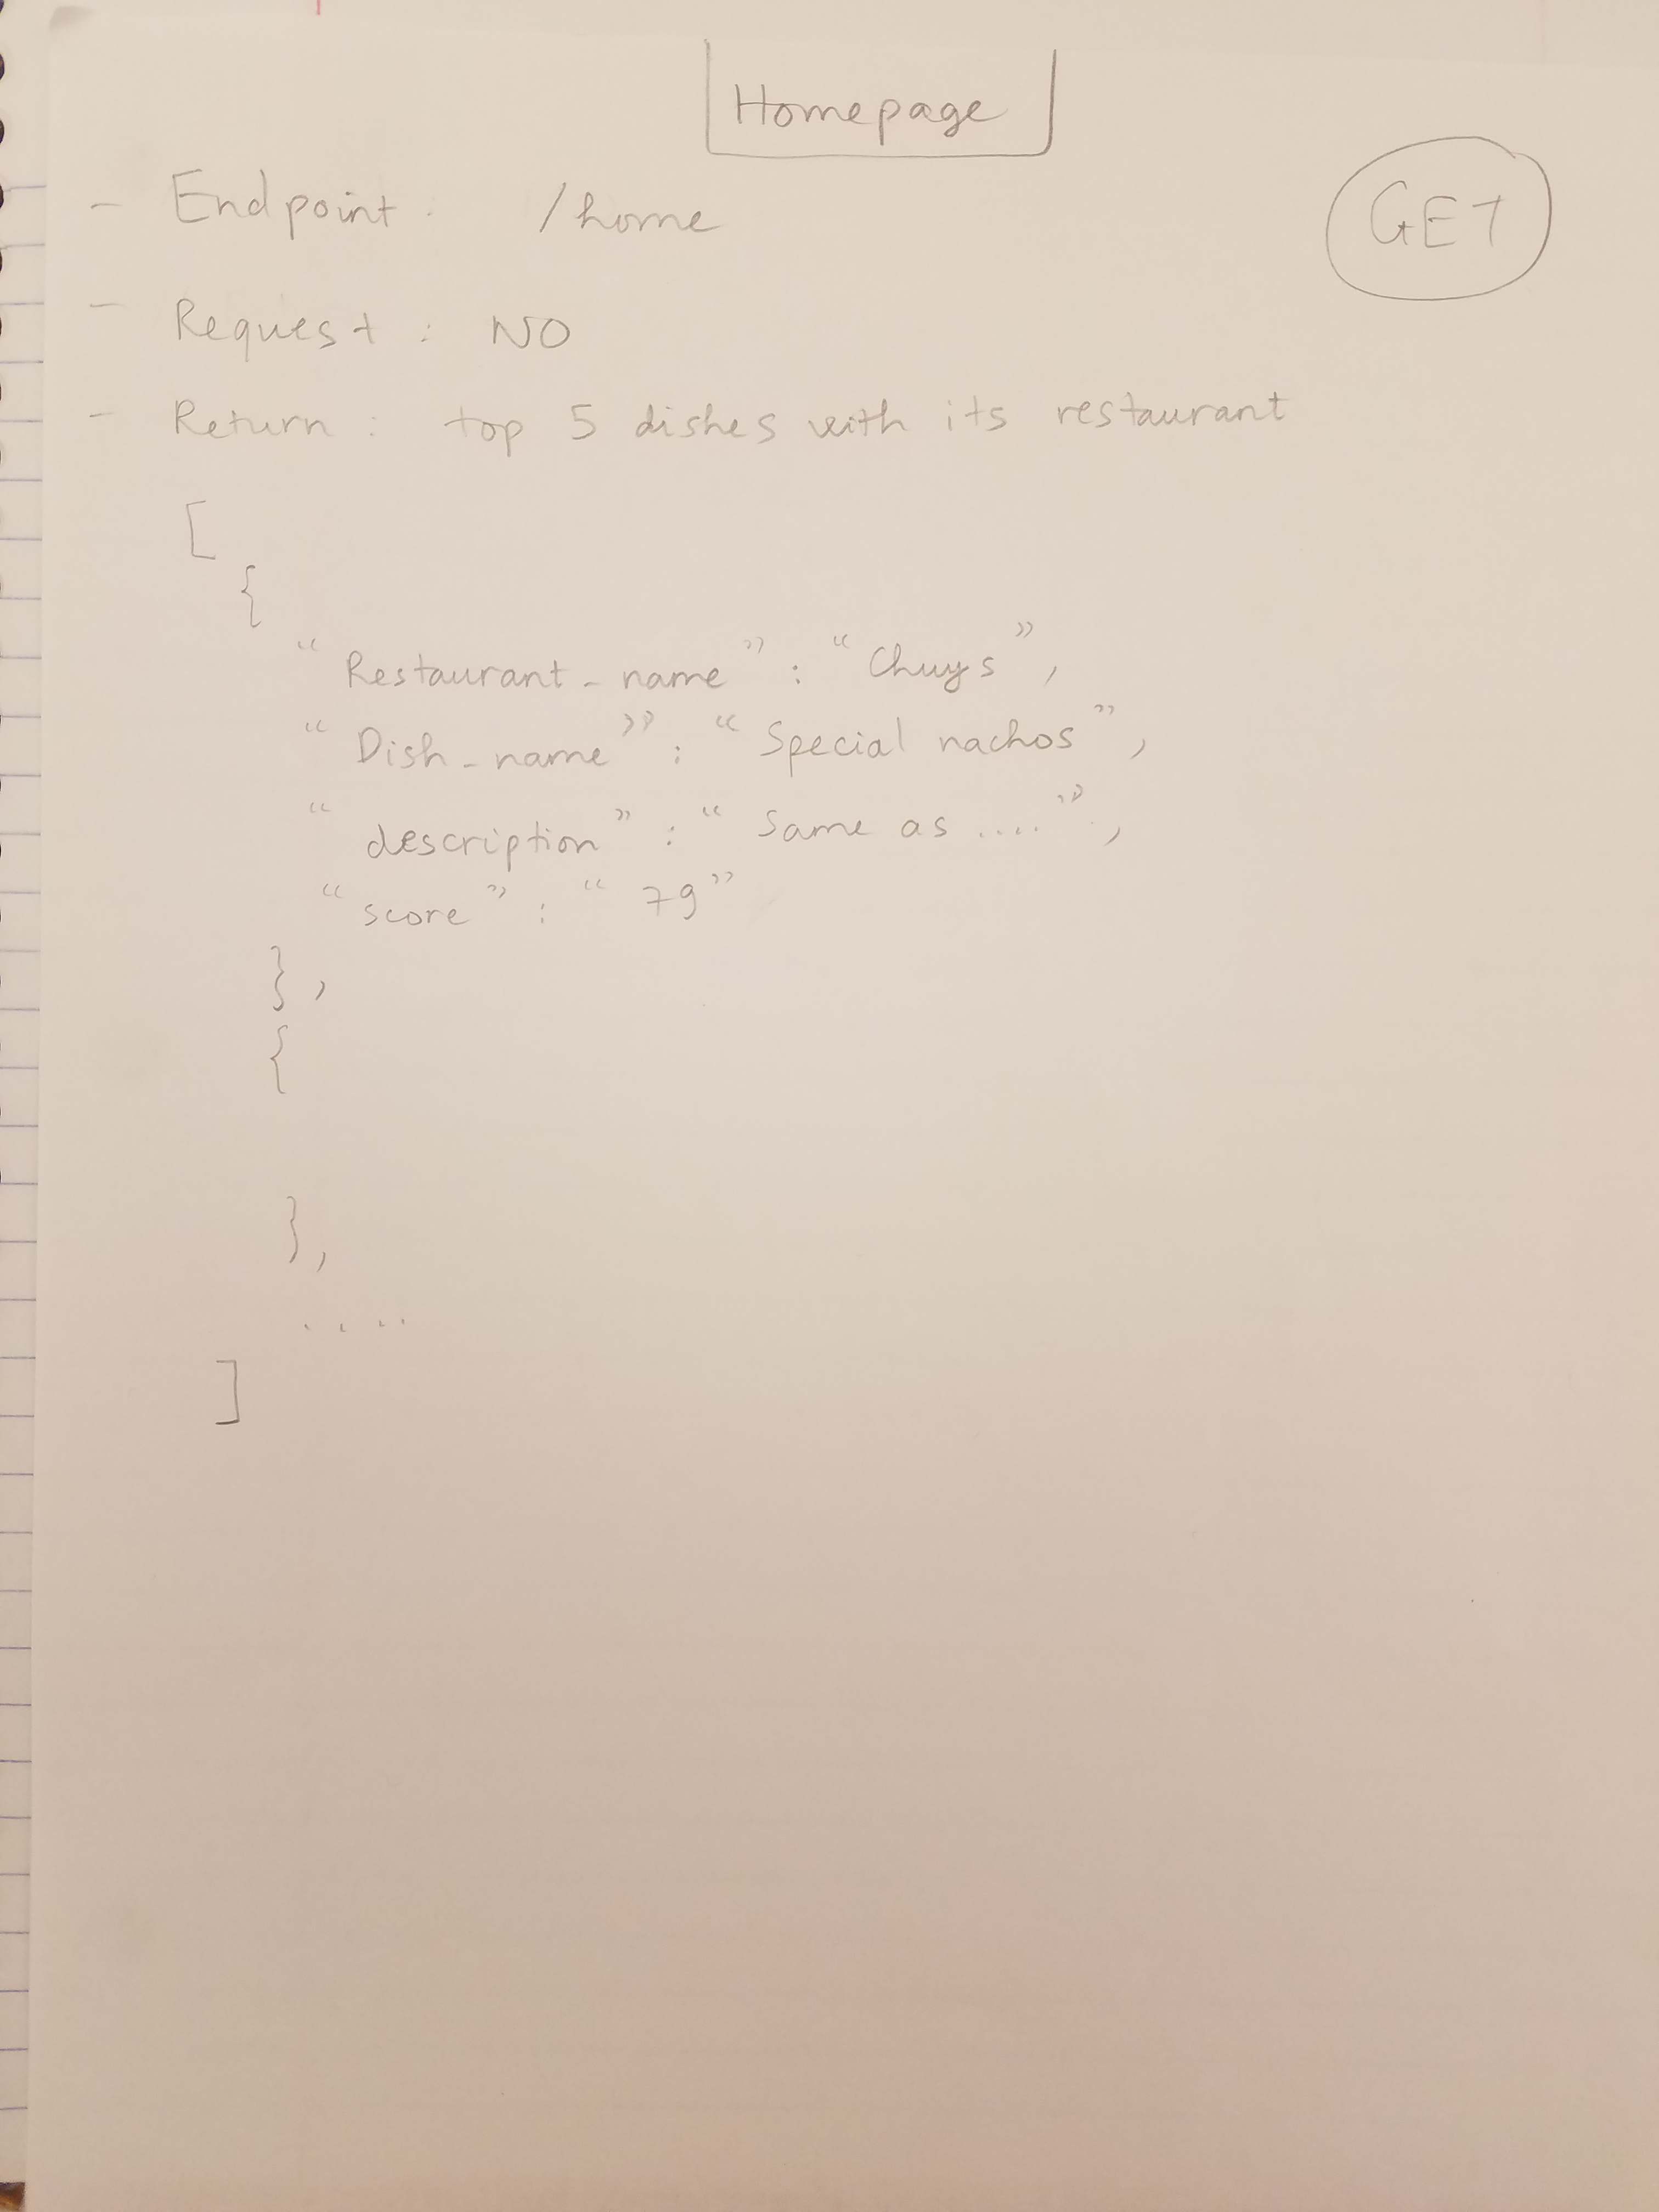 Homepage
- Endpoint : /home
GET
- Request : NO
- Return : top 5 dishes with its restaurant
[
{
"Restaurant_name" : "Chuys",
"Dish_name" : "Special nachos",
"description" : "Same as ....",
"score" : "79"
},
{
},
....
]